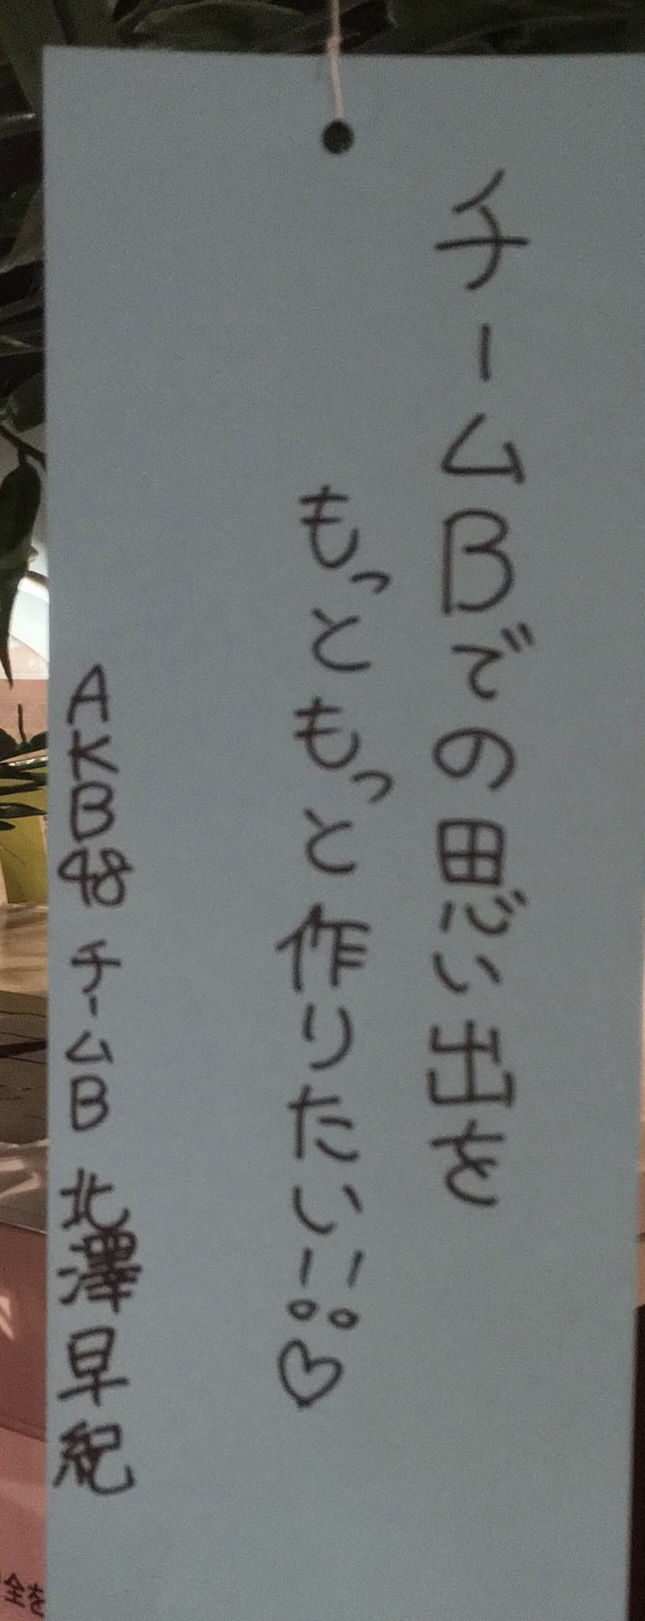 チームBでの思い出を
もっともっと作りたい!!♡
AKB48 チームB 北澤早紀
全を